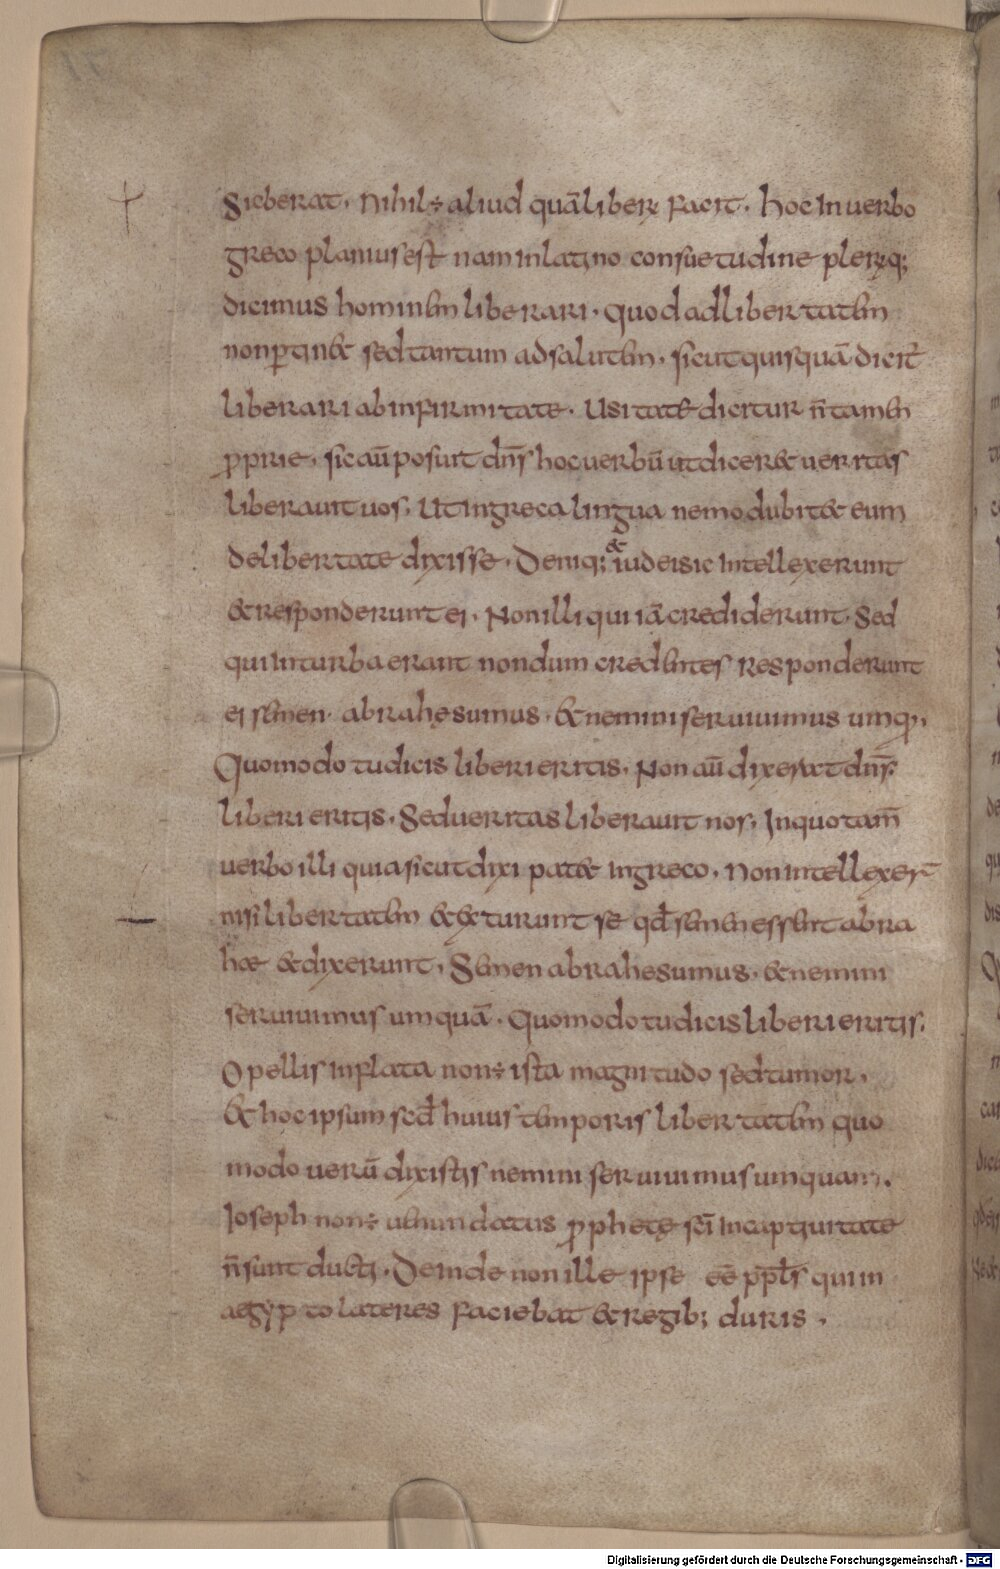 Sicberat. Nihil÷ aliud quā liberę facit. hoc In uerbo
greco planius est nam in latino consuetudine pleruq;
dicimus hominem liberari. Quod ad libertatem
non ꝑtin& sed tantum ad salutem. sicut quisquā dicit̄
liberari ab infirmitate. Usitatę dicitur n̄ tamen
ꝓprie. sic aū posuit dn̄s hoc uerbū ut dicer& ueritas
liberauit uos. Ut in greca lingua nemo dubit& eum
de libertate dixisse. Deniq; & iudei sic Intellexerunt
& responderunt ei. Non illi qui iā crediderunt. Sed
qui In turba erant nondum credentes Responderunt
ei semen abrahę sumus. & nemini seruiuimus umqꝫ.
Quomodo tu dicis liberi eritis. Non aū dixerat dn̄s.
liberi eritis. Sed ueritas liberauit nos. In quo tam̄
uerbo illi quia sicut dixi pat& In greco. Non intellexer̄
nisi libertatem & &turunt se qd̄ semen essent abra
hæ & dixerunt. Semen abrahe sumus. & nemini
seruiuimus umquā. Quomodo tu dicis liberi eritis.
O pellis Inflata non÷ ista magnitudo sed tumor.
& hoc ipsum scd̄ huius temporis libertatem quo
modo uerū dixistis nemini seruiuimus umquam.
Ioseph non÷ uenundatus ꝓphetę sc̄i In captiuitate
n̄ sunt ducti. Deinde non ille ipse eē pp̄ls qui in
aegypto lateres faciebat & regib; duris.
Digitalisierung gefördert durch die Deutsche Forschungsgemeinschaft - DFG